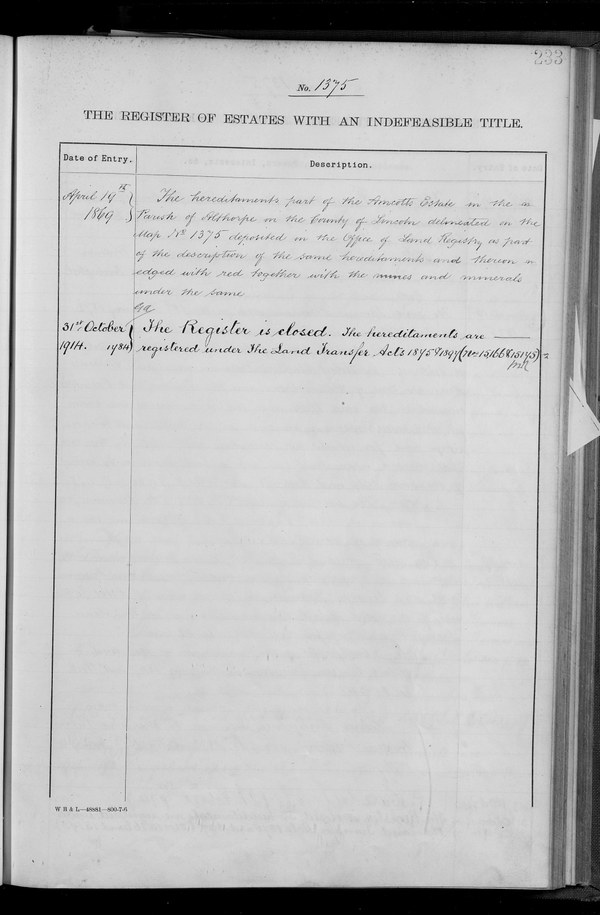 233
No. 1375
THE REGISTER OF ESTATES WITH AN INDEFEASIBLE TITLE.
Date of Entry. Description.
April 19th The hereditaments part of the Amcotts Estate in the
1869 Parish of Althorpe in the County of Lincoln delineated on the
Map No. 1375 deposited in the Office of Land Registry as part
of the description of the same hereditaments and thereon
edged with red together with the mines and minerals
under the same
31st October The Register is closed. The hereditaments are
1914. registered under The Land Transfer Acts 1875 & 1897
W B & L—48881—800-7-6